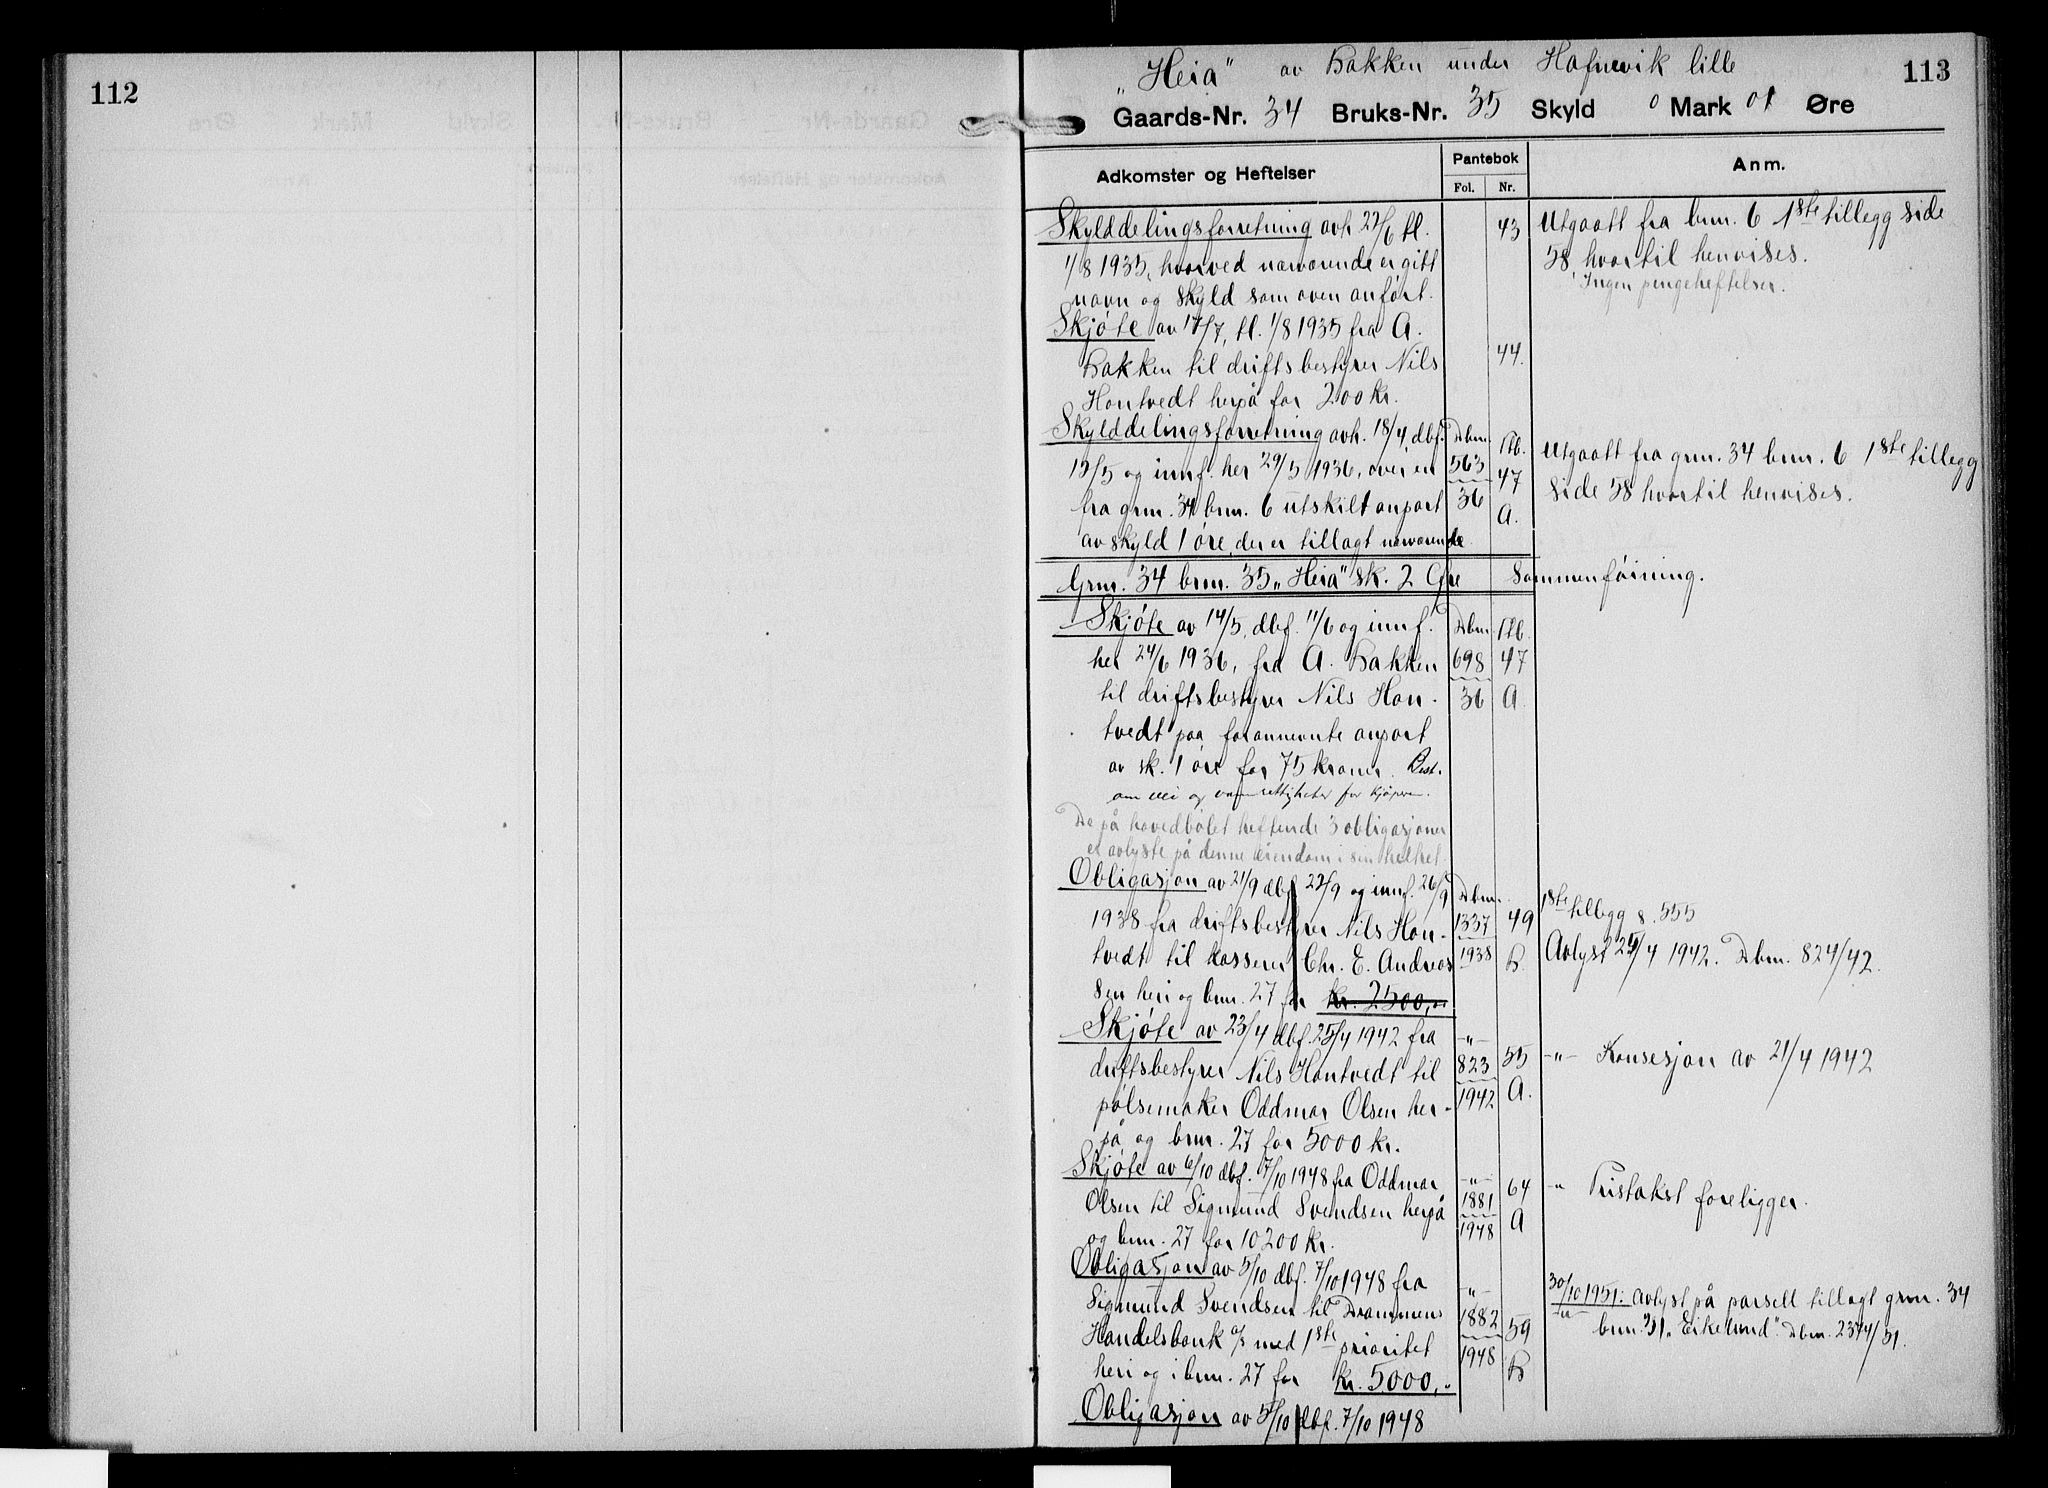 112
113
„Heia" av Bakken under Hafnevik lille
Gaards-Nr. 34 Bruks-Nr. 35 Skyld 0 Mark 01 Øre
Adkomster og Heftelser
Pantebok
Fol. Nr.
Anm.
Skylddelingsforretning avh. 27/6 tl. 43 Utgaatt fra bnr. 6 1ste tillegg side
1/8 1935, hvorved nærværende er gitt 58 hvortil henvises.
navn og skyld som oven anført. Ingen pengeheftelser.
Skjøte av 17/7, tl. 1/8 1935 fra A.
Bakken til driftsbestyrer Nils 44.
Hontvedt herpå for 200 kr.
Skylddelingsforretning avh. 18/4 dbf. Dbnr. Ptb. Utgaatt fra gnr. 34 bnr. 6 1ste tillegg
12/5 og innf. her 29/5 1936, over en 563 47 side 58 hvortil henvises.
fra gnr. 34 bnr. 6 utskilt anpart 36 A.
av skyld 1 øre, der er tillagt nærværende
Gnr. 34 bnr. 35 „Heia" sk. 2 Øre Sammenføining.
Skjøte av 14/5, dbf. 11/6 og innf. Dbnr. Ptb.
her 24/6 1936, fra A. Bakken 698 47
til driftsbestyrer Nils Hon- 36 A
tvedt paa forannevnte anpart
av sk. 1 øre for 75 kroner. Best.
om vei og vannrettigheter for kjøperen.
De på hovedbølet heftende 3 obligasjoner
er avlyste på denne eiendom i sin helhet
Obligasjon av 21/9 dbf. 22/9 og innf. 26/9 Dbnr. 1ste tillegg s. 555
1938 fra driftsbestyrer Nils Hon- 1337 49
tvedt til kasserer Chr. E. Andreas 1938 B. Avlyst 25/4 1942. Dbnr. 824/42.
sen heri og bnr. 27 for kr. 2500,00
Skjøte av 23/4 dbf. 25/4 1942 fra -"-
driftsbestyrer Nils Hontvedt til 823 55 -"- Konsesjon av 21/4 1942
pølsemaker Oddmar Olsen her- 1942 A.
på og bnr. 27 for 5000 kr.
Skjøte av 6/10 dbf. 7/10 1948 fra Oddmar -"- 64 " Pristakst foreligger.
Olsen til Sigmund Svendsen herpå 1881 A
og bnr. 27 for 10200 kr. 1948
Obligasjon av 5/10 dbf. 7/10 1948 fra -"- 30/10 1951: Avlyst på parsell tillagt gnr. 34
Sigmund Svendsen til Drammens 1882 59 bnr. 31 „Eikelund". Dbnr. 2374/51.
Handelsbank a/s med 1ste prioritet 1948 B
heri og i bnr. 27 for kr. 5000,"
Obligasjon av 5/10 dbf. 7/10 1948